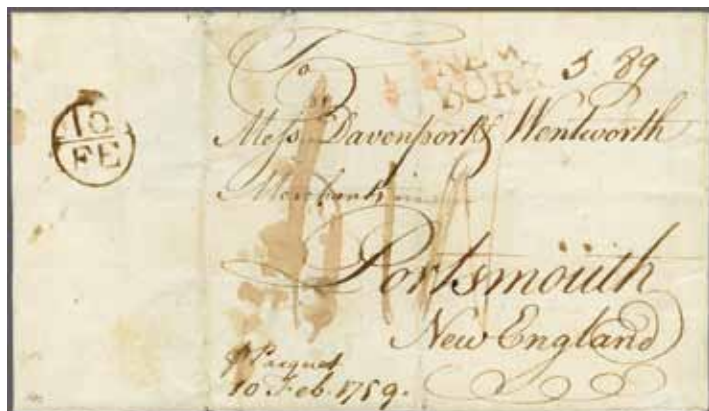 To
NEW
YORK
3. 89
10
FE
Messrs Davenport & Wentworth
Merchants in
Portsmouth
New England
Pr Pacquet
10 Feb. 1759.